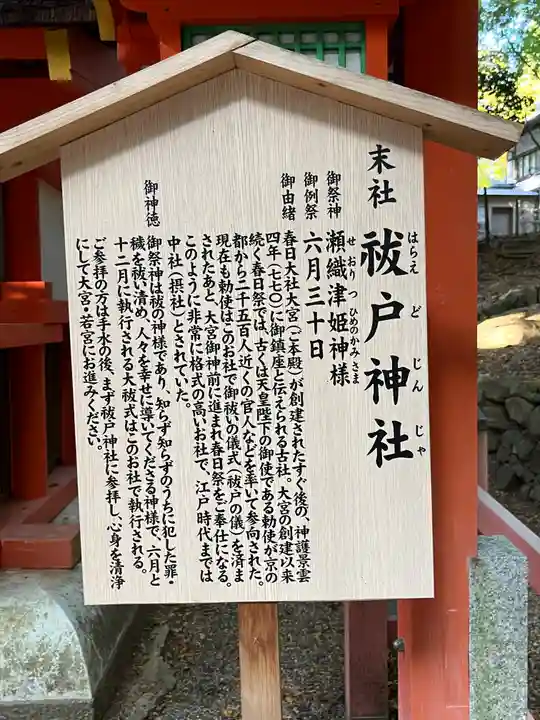 末社
祓戸神社
はらえどじんじゃ
御祭神
瀬織津姫神様
せおりつひめのかみさま
御例祭
六月三十日
御由緒
春日大社大宮（ご本殿）が創建されたすぐ後の、神護景雲
四年（七七〇）に御鎮座と伝えられる古社。大宮の創建以来
続く春日祭では、古くは天皇陛下の御使である勅使が京の
都から二千五百人近くの官人などを率いて参向された。
現在も勅使はこのお社で御祓いの儀式（祓戸の儀）を済ま
されたあと、大宮御神前に進まれ春日祭をご奉仕になる。
このように非常に格式の高いお社で、江戸時代までは
中社（摂社）とされていた。
御神徳
御祭神は祓の神様であり、知らず知らずのうちに犯した罪・
穢を祓い清め、人々を幸せに導いてくださる神様で、六月と
十二月に執行される大祓式はこのお社で執行される。
ご参拝の方は手水の後、まず祓戸神社に参拝し、心身を清浄
にして大宮・若宮にお進みください。